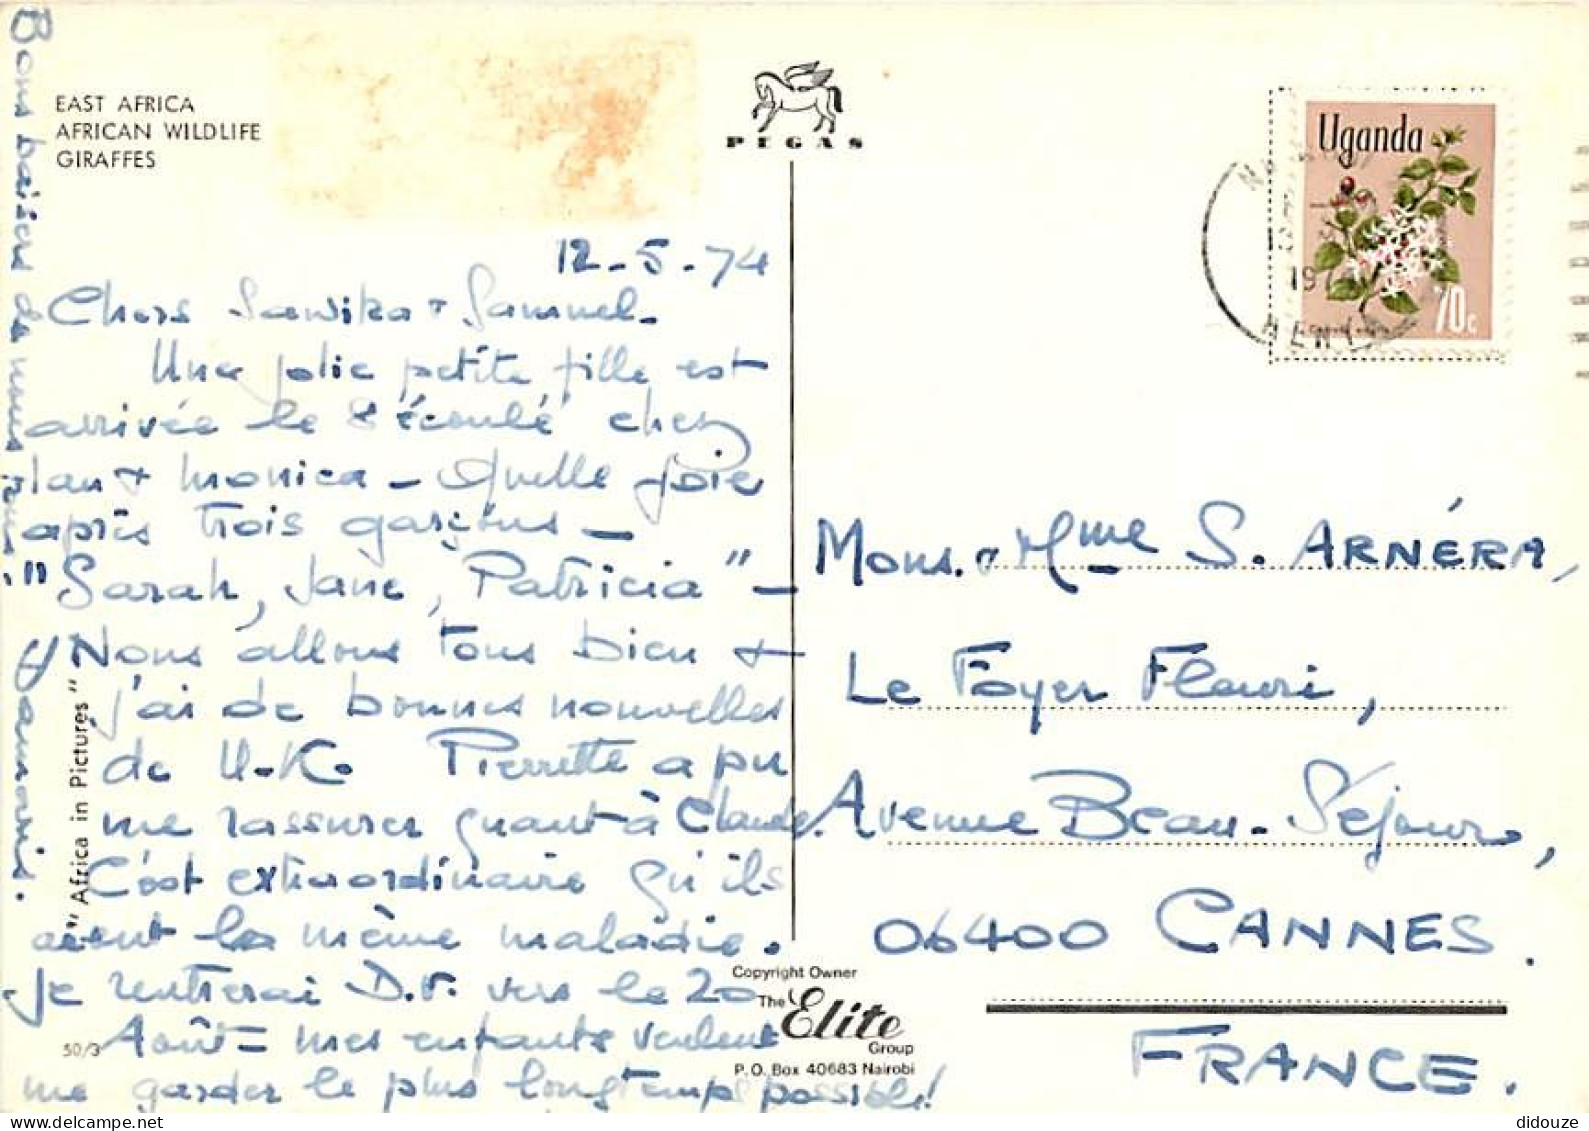 EAST AFRICA
AFRICAN WILDLIFE
GIRAFFES
PEGAS
Uganda
70c
19
KENYA
12-5-74
Chers Sawika & Samuel-
Une jolie petite fille est
arrivée le 8 écoulé chez
Ian & Monica - Quelle joie
après trois garçons -
"Sarah, Jane, Patricia" -
Nous allons tous bien &
j'ai de bonnes nouvelles
de U.K. Pierrette a pu
me rassurer quant à Claude.
C'est extraordinaire qu'ils
aient la même maladie.
Je rentrerai D.V. vers le 20
Août = mes enfants veulent
me garder le plus longtemps possible!
Bons baisers de nous tous.
"Africa in Pictures"
50/3
Copyright Owner
The Elite
Group
P.O. Box 40683 Nairobi
Mons. & Mme S. ARNÉRA,
Le Foyer Fleuri,
Avenue Beau-Séjour,
06400 CANNES.
FRANCE.
delcampe.net
didouze